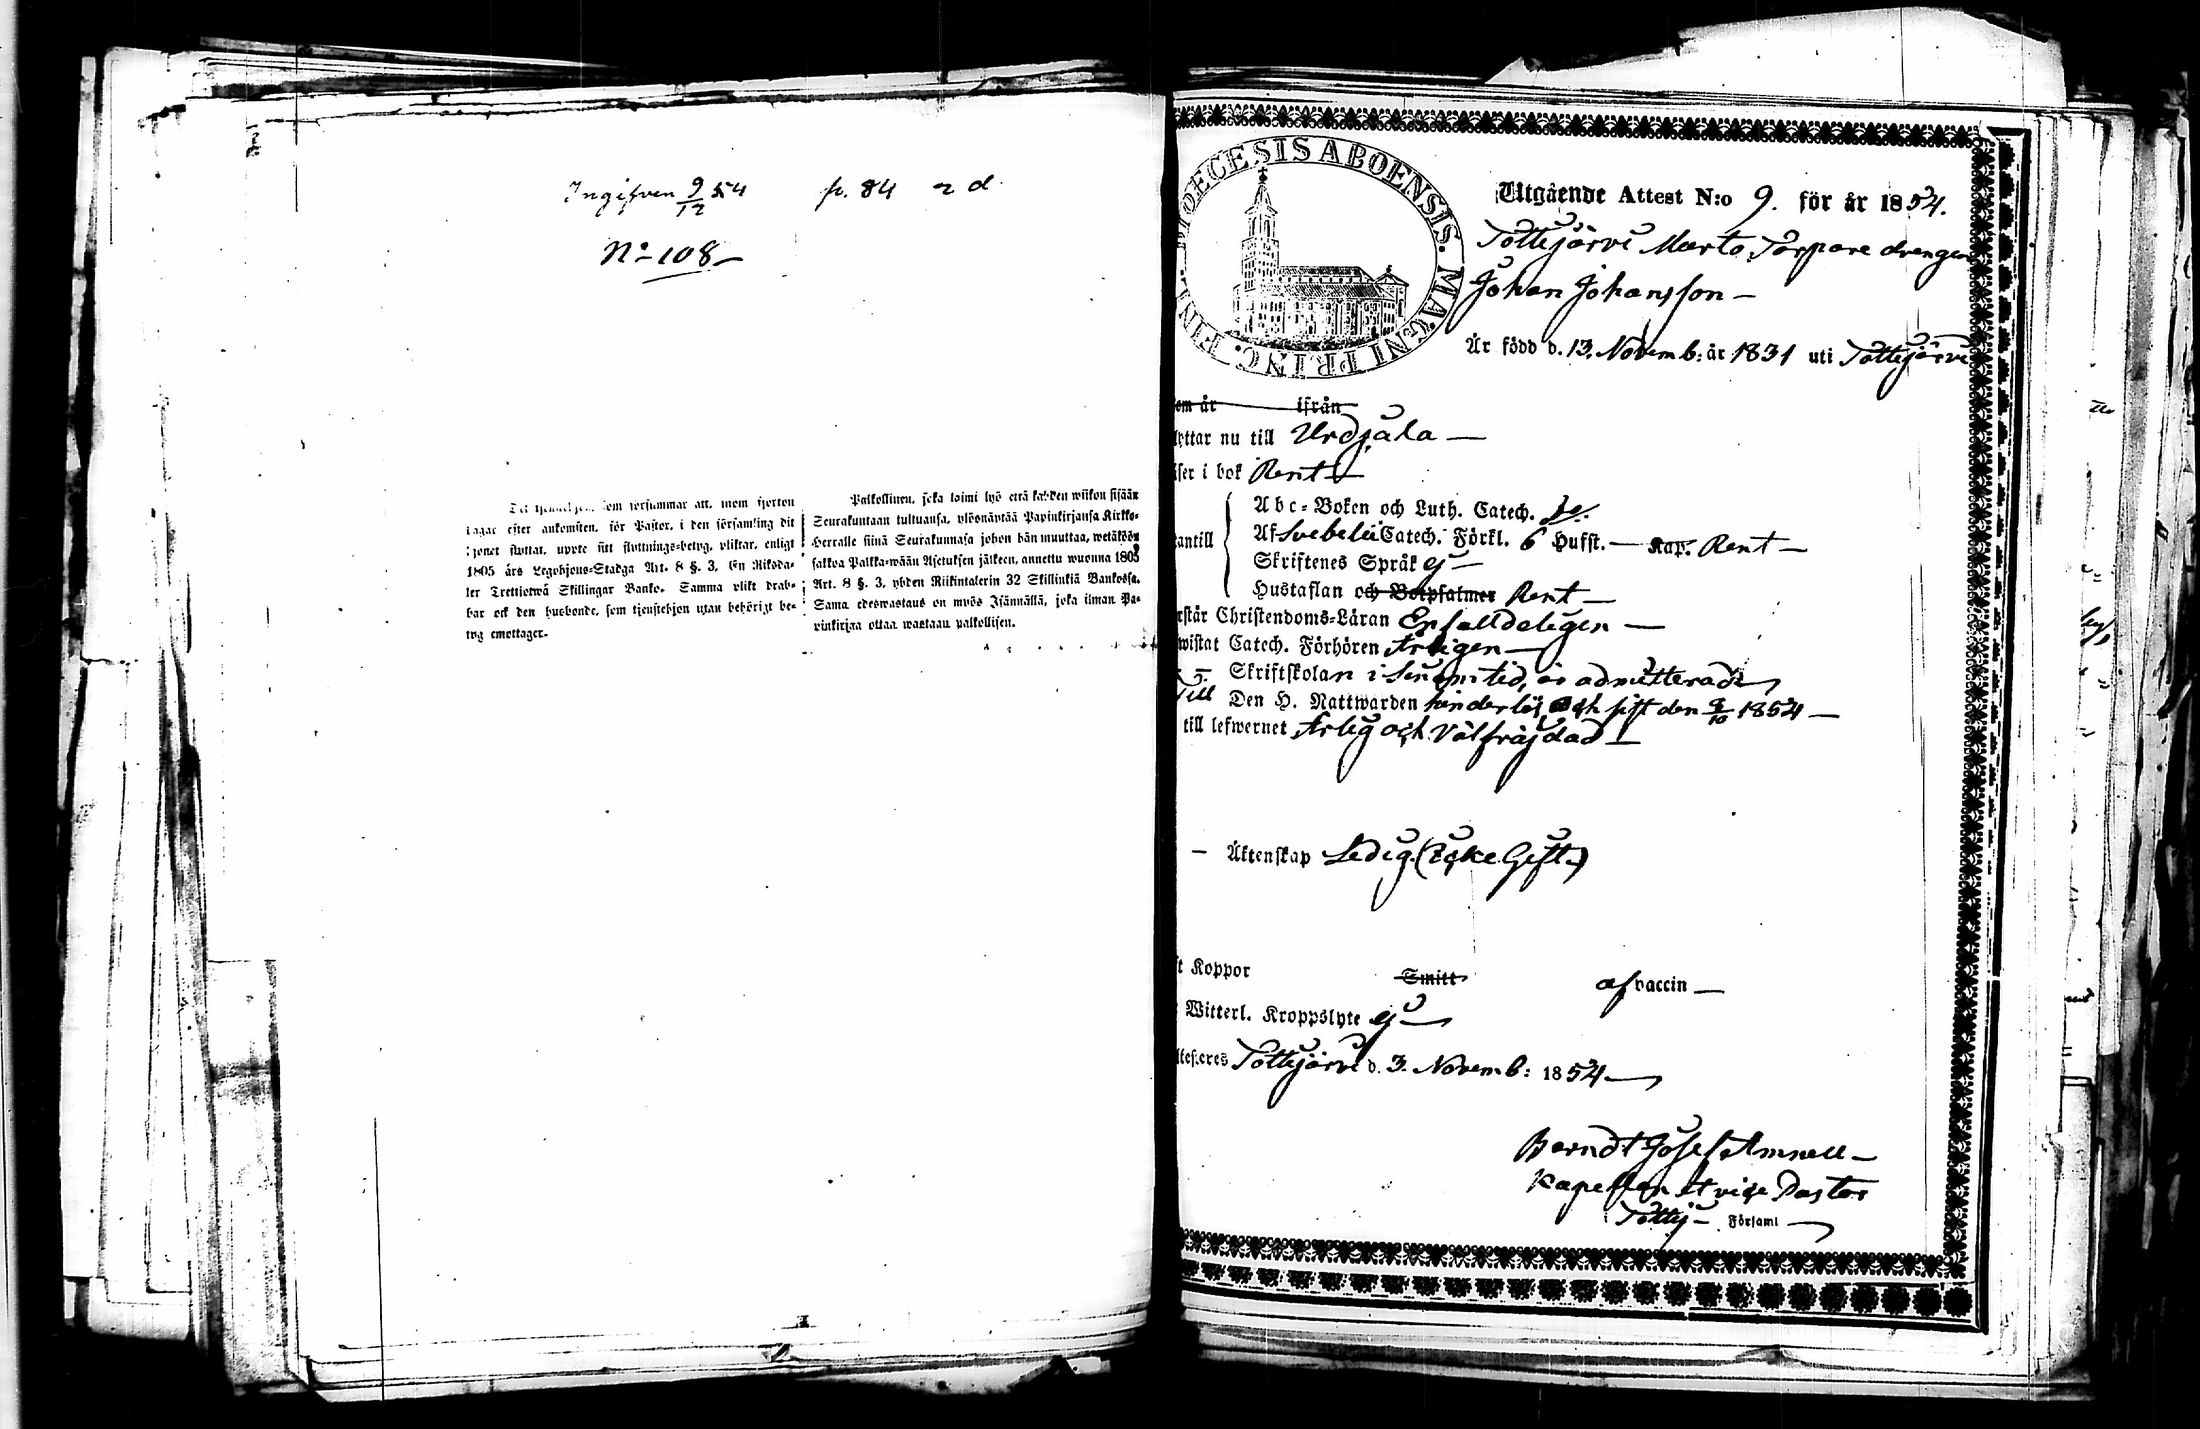 Ingifven 9/12 54 p. 84 2 d
No 108
som försummar att, inom fjorton
dagar efter ankomsten, för Pastor, i den församling dit
tjonet flyttat, uppte sitt flyttnings-betyg, pliktar, enligt
1805 års Legohjons-Stadga Art. 8 §. 3, En Riksda-
ler Trettiotwå Skillingar Banko. Samma plikt drab-
bar ock den husbonde, som tjenstehjon utan behörigt be-
tyg emottager.
Palkollinen, joka laimi lyö että kahden wiikon sisään
Seurakuntaan tultuansa, ylösnäyttää Papinkirjansa Kirkko-
Herralle siinä Seurakunnasa johon hän muuttaa, wetäköön
sakkoa Palkka-wään Asetuksen jälkeen, annettu wuonna 1805
Art. 8 §. 3, yhden Riikintalerin 32 Skillinkiä Bankossa.
Sama edeswastaus on myös Isännällä, joka ilman Pa-
pinkirjaa ottaa wastaan palkollisen.
DIOECESIS ABOENSIS. MAGNI PRINC. FINL.
Utgående Attest N:o 9. för år 1854.
Tottijärvi Marto Torpare drengen
Johan Johansson –
År född d. 13. Novemb: år 1831 uti Tottijärvi
om år ifrån
lyttar nu till Urdjala –
äser i bok Rent –
antill
Abc-Boken och Luth. Catech. Ja.
Af Svebelii Catech. Förkl. 6 Hufst. – Kap. Rent –
Skriftenes Språk ej –
Hustaflan och Botpsalmer Rent –
rstår Christendoms-Läran Enfalldeligen –
wistat Catech. Förhören Årligen –
Skriftskolan i sinom tid, är admitterad
Till Den H. Nattwarden hinderlös och sist den 8/10 1854 –
till lefwernet Ärlig och Välfräjdad –
– Äktenskap Ledig. (Icke Gift.)
t Koppor Smitt af vaccin –
Witterl. Kroppslyte ej –
tteseres Tottijärvi d. 3. Novemb: 1854 –
Berndt Josef Amnell –
Kapellan et vice Pastor
Tottij – Församl –